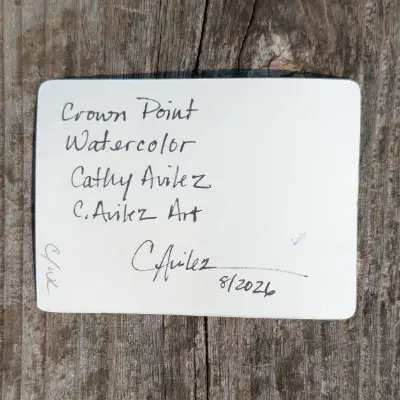 Crown Point
Watercolor
Cathy Avilez
C. Avilez Art
C. Avilez
8/2026